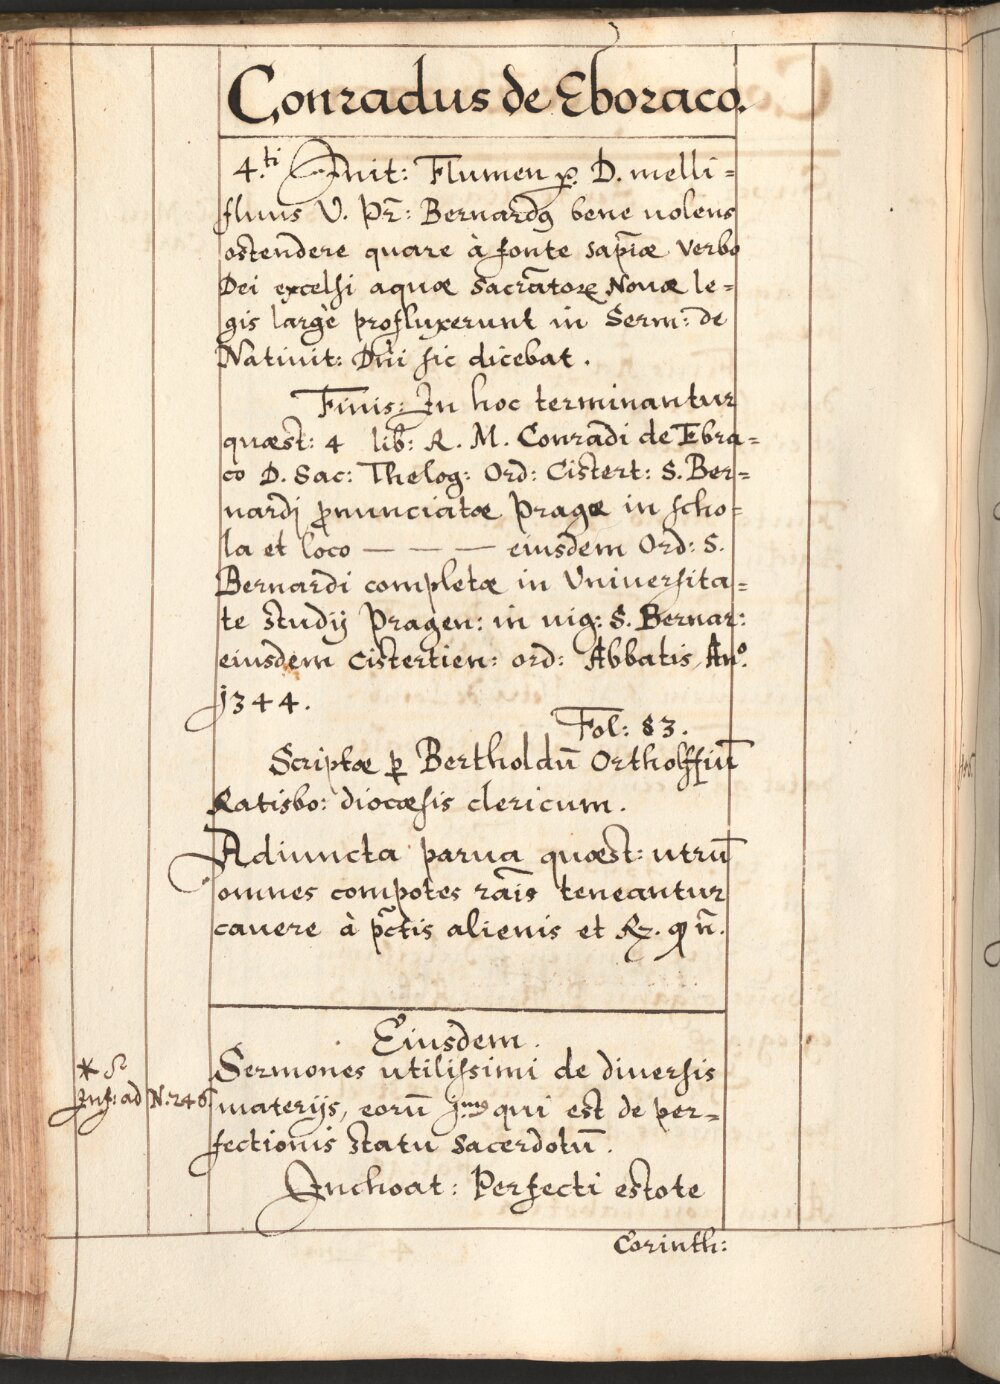 Conradus de Eboraco.
4.ti Init: Flumen p. D. melli=
fluus V. Pr̃: Bernardꝯ bene uolens
ostendere quare à fonte sap̃iæ verbo
Dei excelsi aquæ sacrãtoꝝ Nouæ le=
gis largè profluxerunt in Serm: de
Natiuit: Dñi sic dicebat.
Finis: In hoc terminantur
quæst: 4 lib: R. M. Conradi de Ebra=
co D. Sac: Thelog: Ord: Cistert: S. Ber=
nardj ꝓnunciatæ Pragæ in scho=
la et loco — — — eiusdem Ord: S.
Bernardi completæ in Vniuersita=
te studij Pragen: in uig: S. Bernar:
eiusdem Cistertien: ord: Abbatis Anº.
1344.
Fol: 83.
Scriptæ ꝑ Bertholdũ Ortholffiũ
Ratisbo: diocæsis clericum.
Adiuncta parua quæst: utrũ
omnes compotes rãis teneantur
cauere à pc̃tis alienis et Rz. ꝙ ñ.
Eiusdem.
Sermones utilissimi de diuersis
* S
Inf: ad N. 246 materijs, eorũ jmꝯ qui est de per=
fectionis statu sacerdotũ.
Inchoat: Perfecti estote
Corinth: